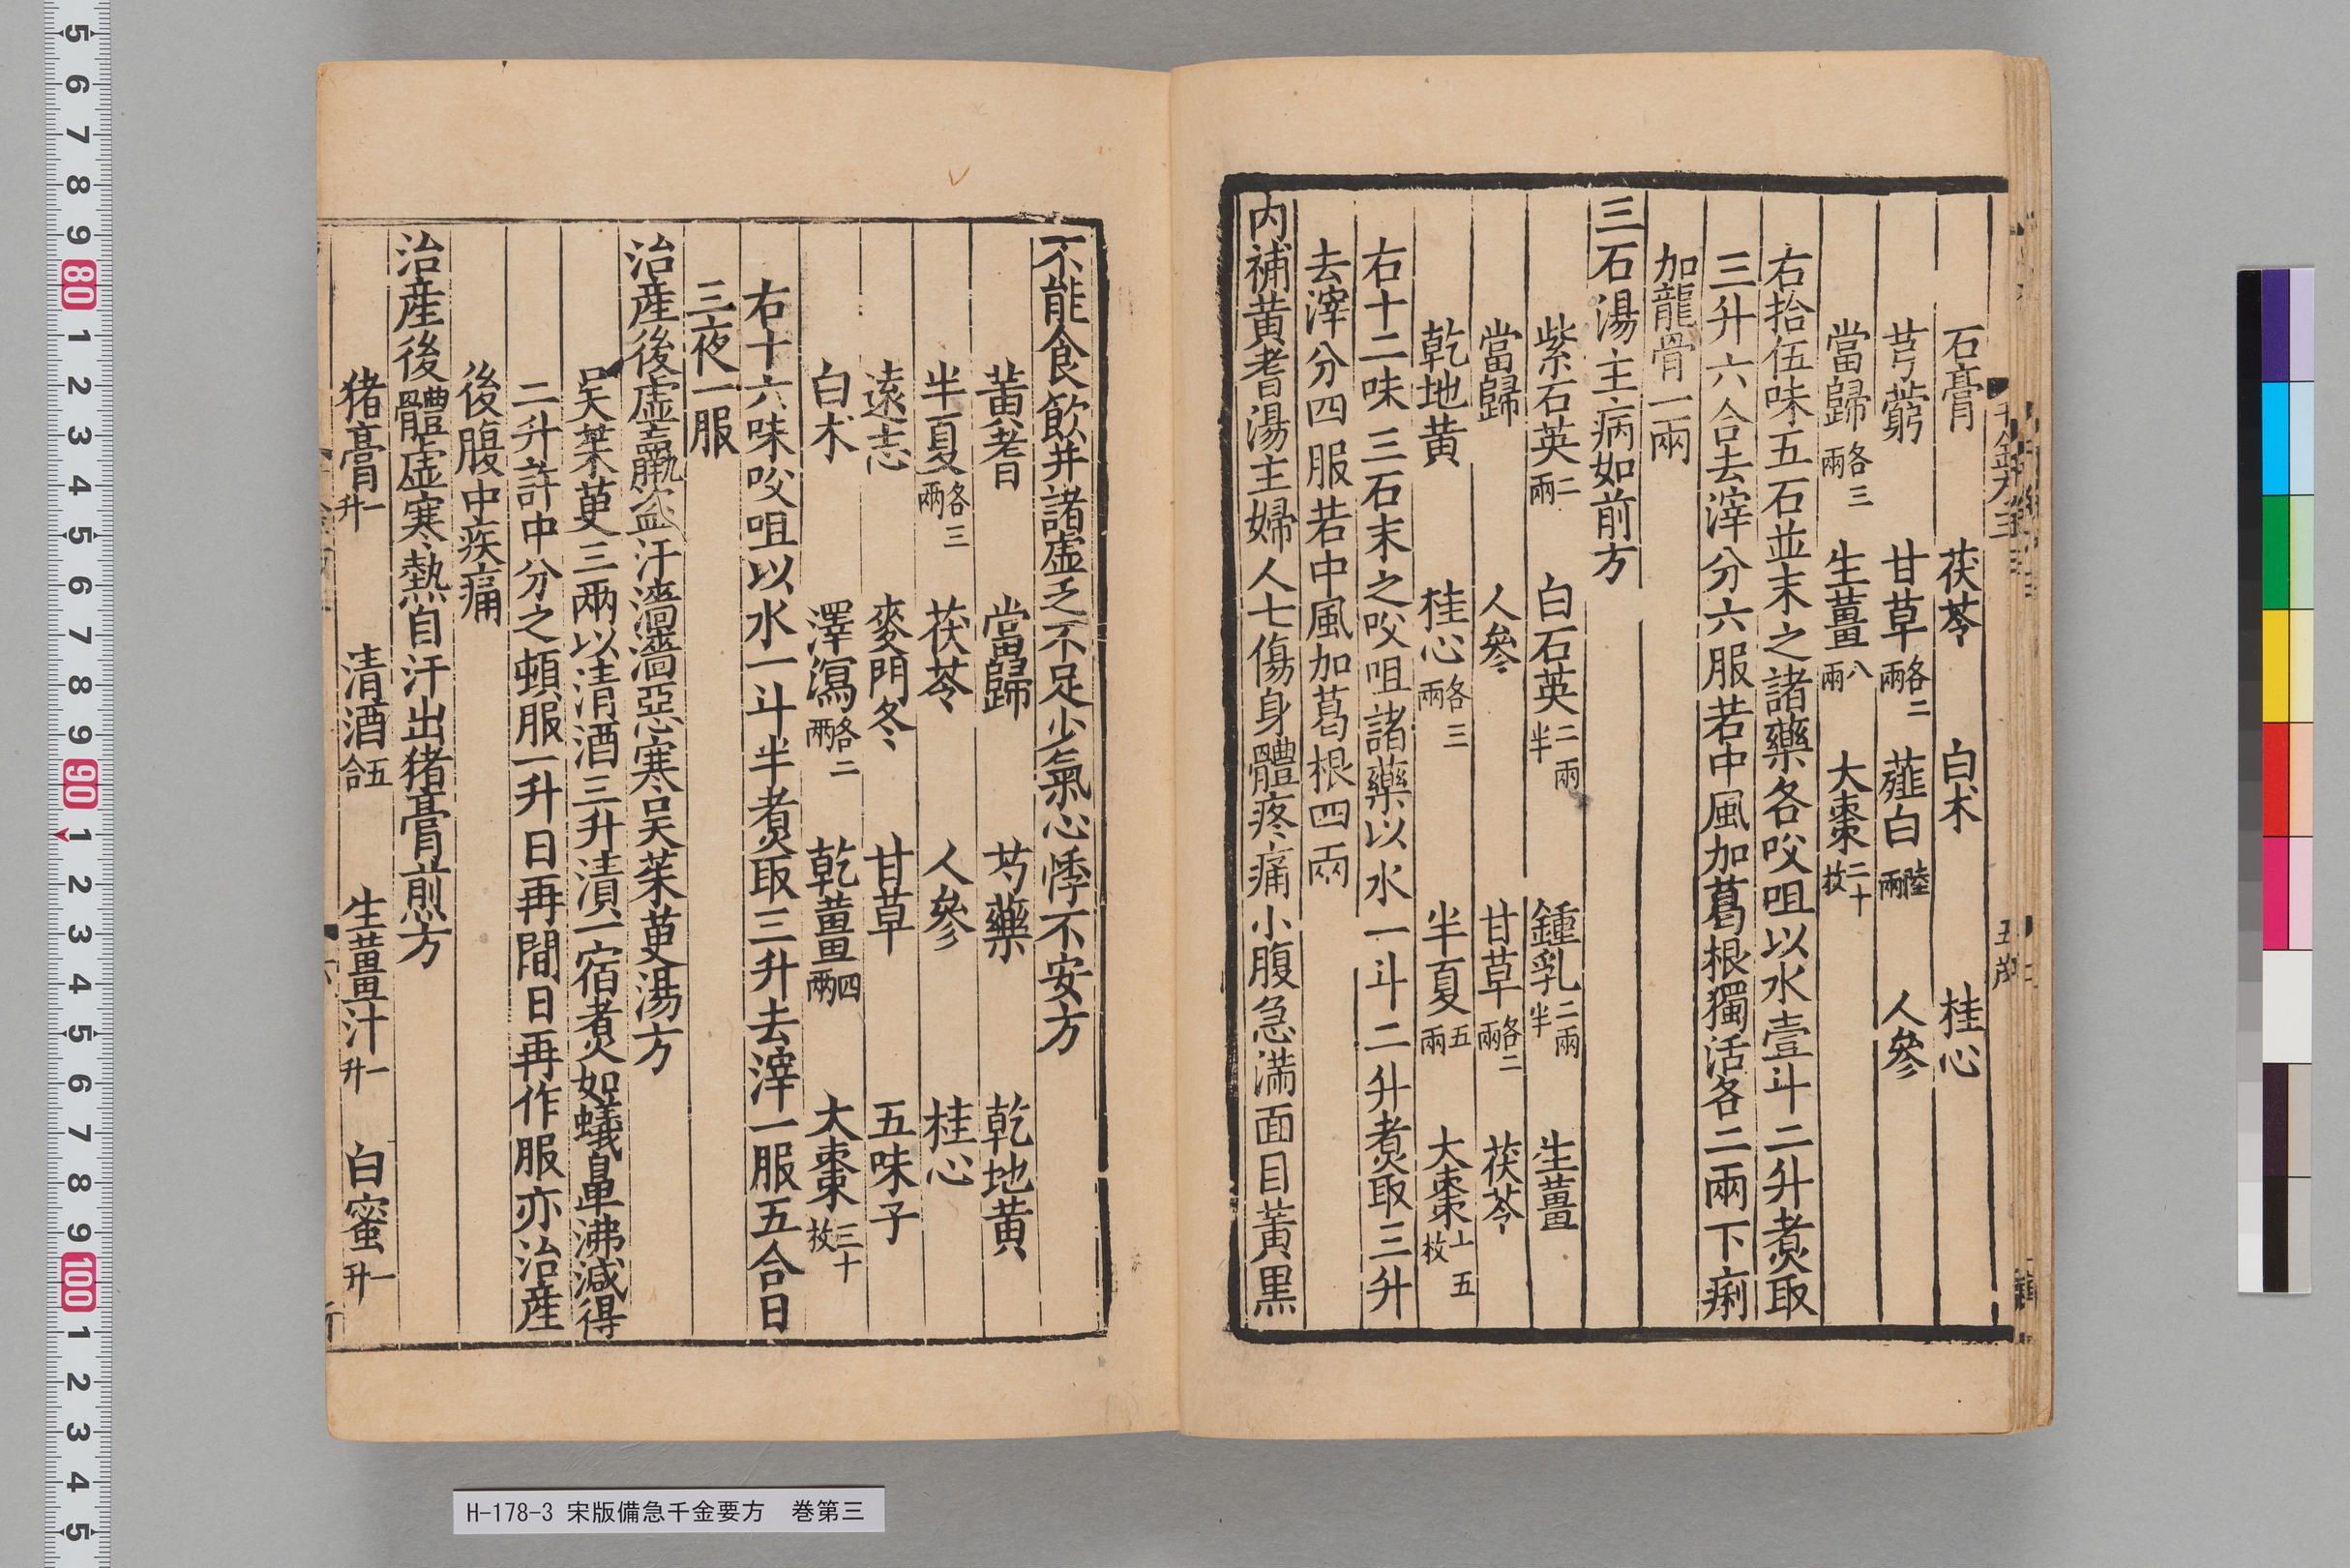 石膏　茯苓　白术　桂心
芎藭　甘草各二兩　薤白陸兩　人參
當歸各三兩　生薑八兩　大棗二十枚
右拾伍味五石並末之諸藥各㕮咀以水壹斗二升煮取
三升六合去滓分六服若中風加葛根獨活各二兩下痢
加龍骨一兩
三石湯主病如前方
紫石英二兩　白石英二兩半　鍾乳二兩半　生薑
當歸　人參　甘草各二兩　茯苓
乾地黃　桂心各三兩　半夏五兩　大棗十五枚
右十二味三石末之㕮咀諸藥以水一斗二升煮取三升
去滓分四服若中風加葛根四兩
內補黃耆湯主婦人七傷身體疼痛小腹急滿面目黃黑
不能食飲并諸虛乏不足少氣心悸不安方
黃耆　當歸　芍藥　乾地黃
半夏各三兩　茯苓　人參　桂心
遠志　麥門冬　甘草　五味子
白术　澤瀉各二兩　乾薑四兩　大棗三十枚
右十六味㕮咀以水一斗半煮取三升去滓一服五合日
三夜一服
治產後虛羸盜汗濇濇惡寒吳茱萸湯方
吳茱萸三兩以清酒三升漬一宿煮如蟻鼻沸減得
二升許中分之頓服一升日再間日再作服亦治產
後腹中疾痛
治產後體虛寒熱自汗出猪膏煎方
猪膏一升　清酒五合　生薑汁一升　白蜜一升
H-178-3 宋版備急千金要方　巻第三
5 6 7 8 9 80 1 2 3 4 5 6 7 8 9 90 1 2 3 4 5 6 7 8 9 100 1 2 3 4 5